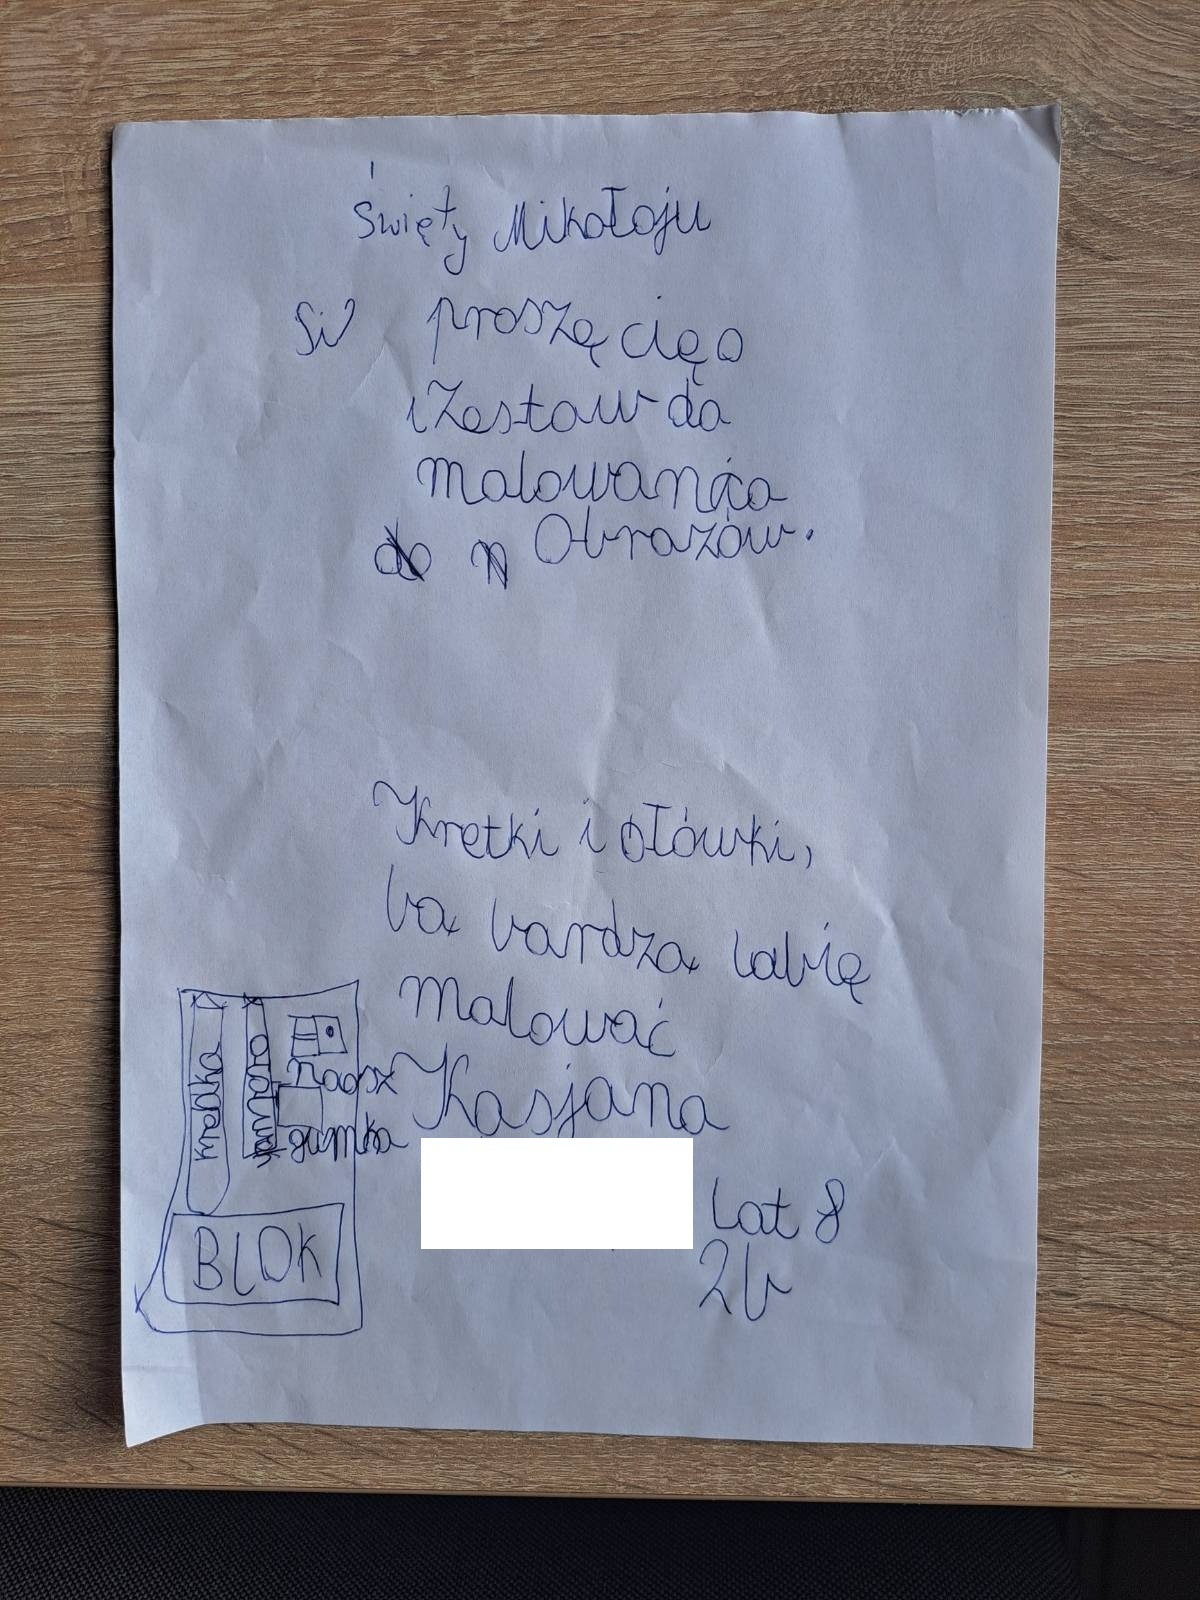 Święty Mikołaju
proszę cię o
Zestaw do
malowania
Obrazów.
Kretki i ołówki,
bo bardzo lobię
malować
Kasjana
Lat 8
2b
kredka
ołówek
gumka
BLOK